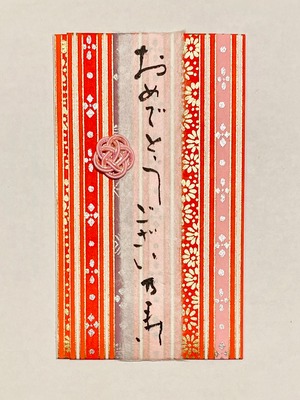 おめでとうござい万寿